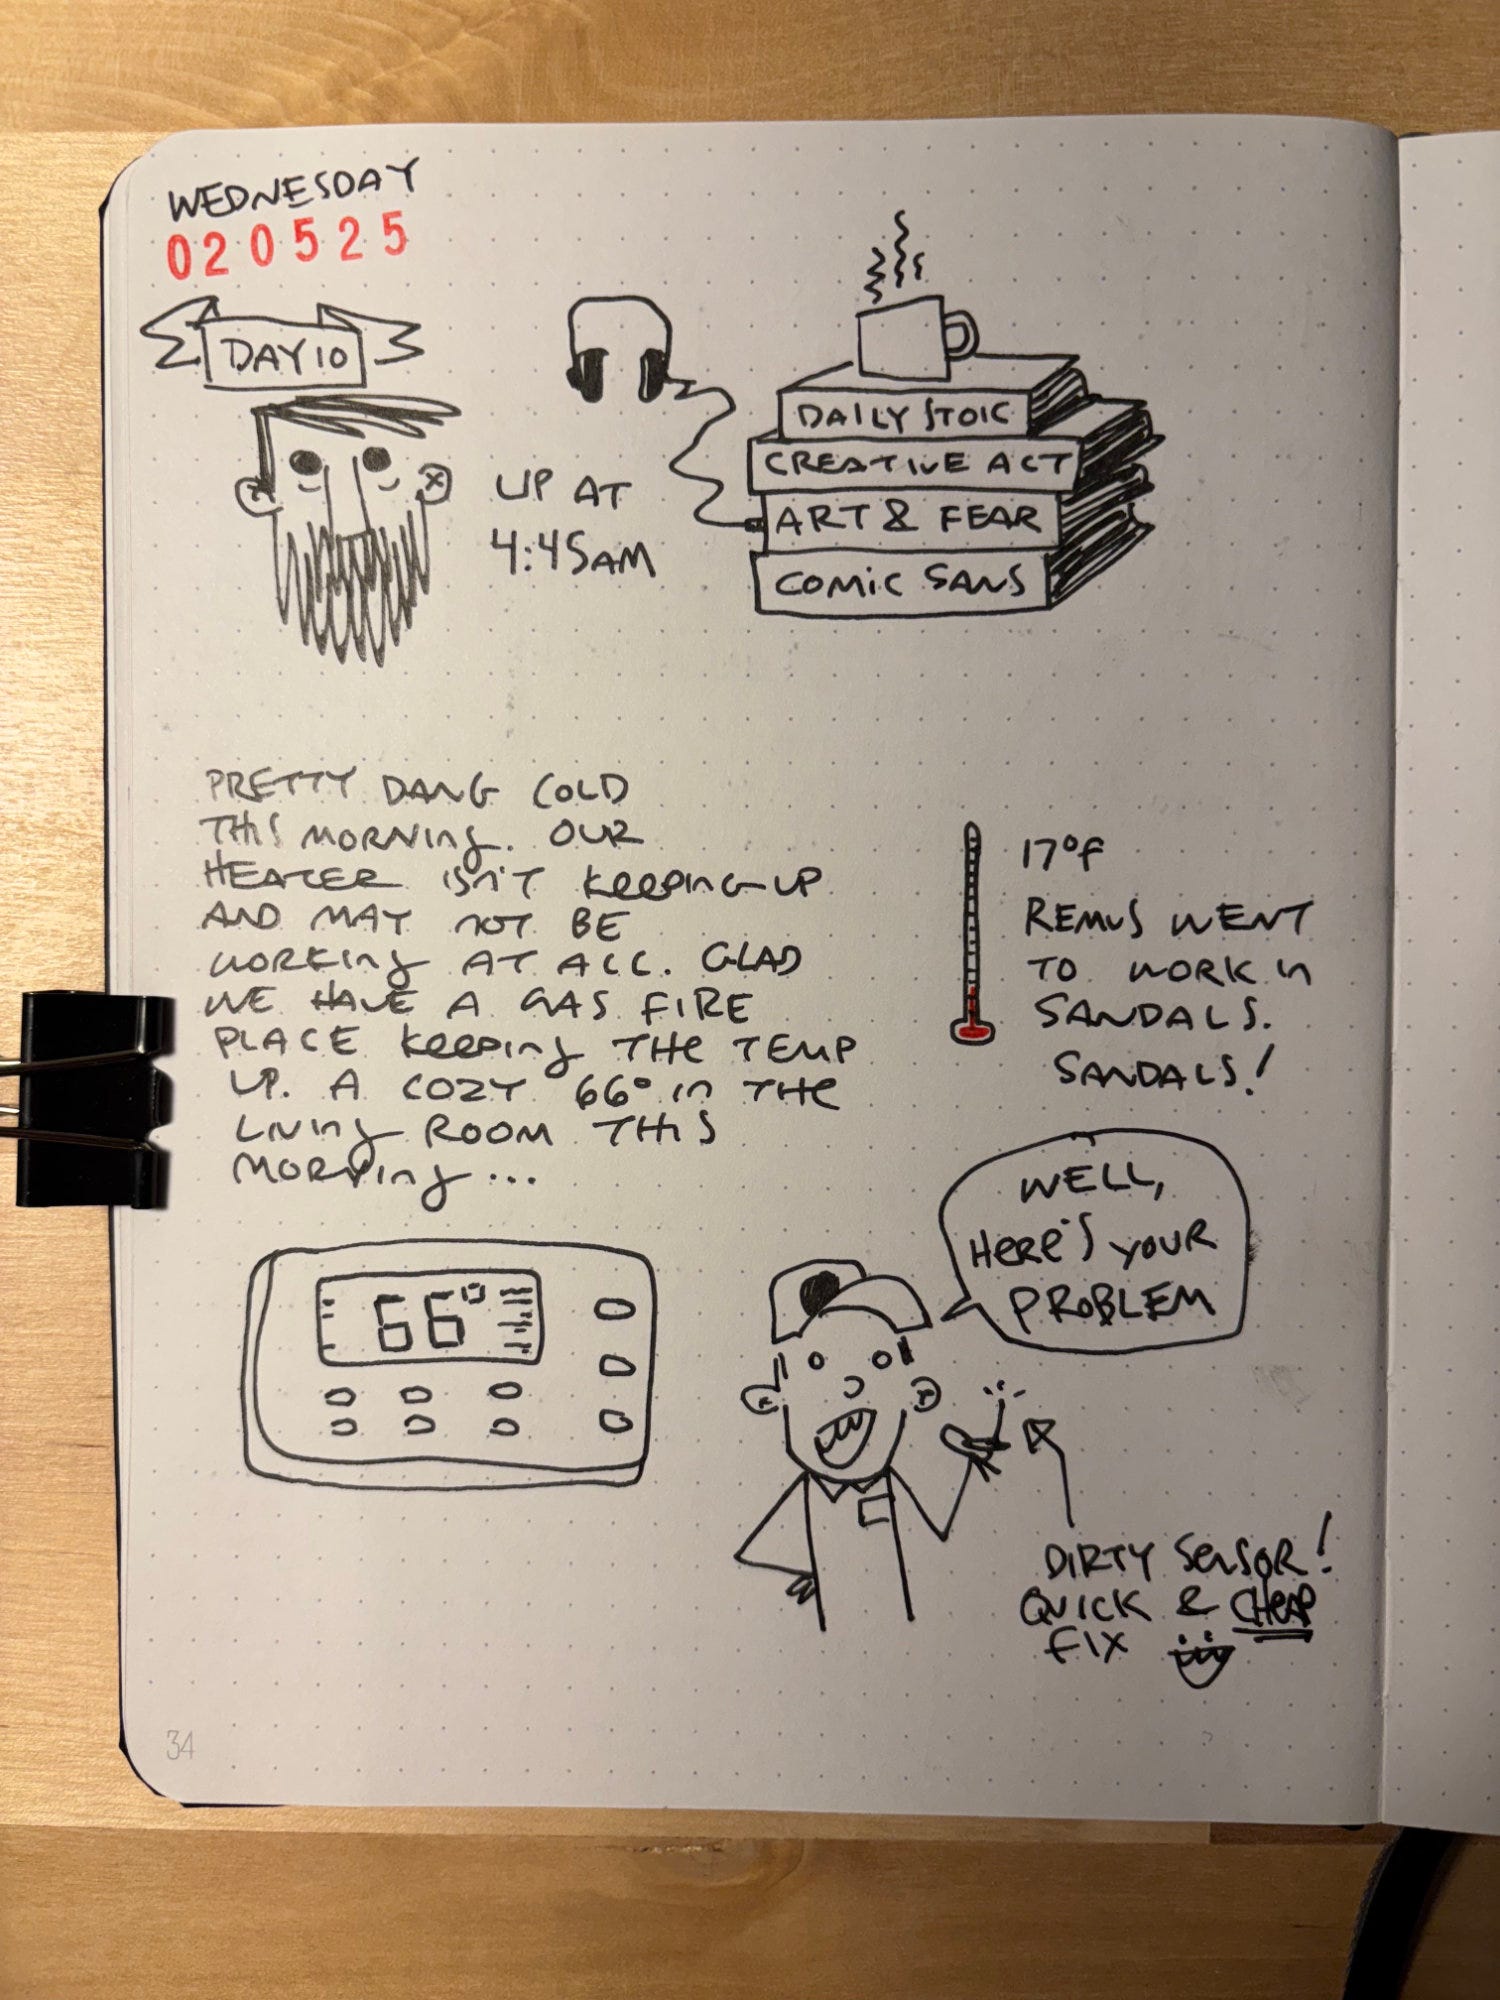 WEDNESDAY
020525
DAY 10
UP AT
4:45AM
DAILY STOIC
CREATIVE ACT
ART & FEAR
COMIC SANS
PRETTY DANG COLD
THIS MORNING. OUR
HEATER ISN'T KEEPING UP
AND MAY NOT BE
WORKING AT ALL. GLAD
WE HAVE A GAS FIRE
PLACE KEEPING THE TEMP
UP. A COZY 66° IN THE
LIVING ROOM THIS
MORNING...
17°F
REMUS WENT
TO WORK IN
SANDALS.
SANDALS!
66°
WELL,
HERE'S YOUR
PROBLEM
DIRTY SENSOR!
QUICK & CHEAP
FIX
34